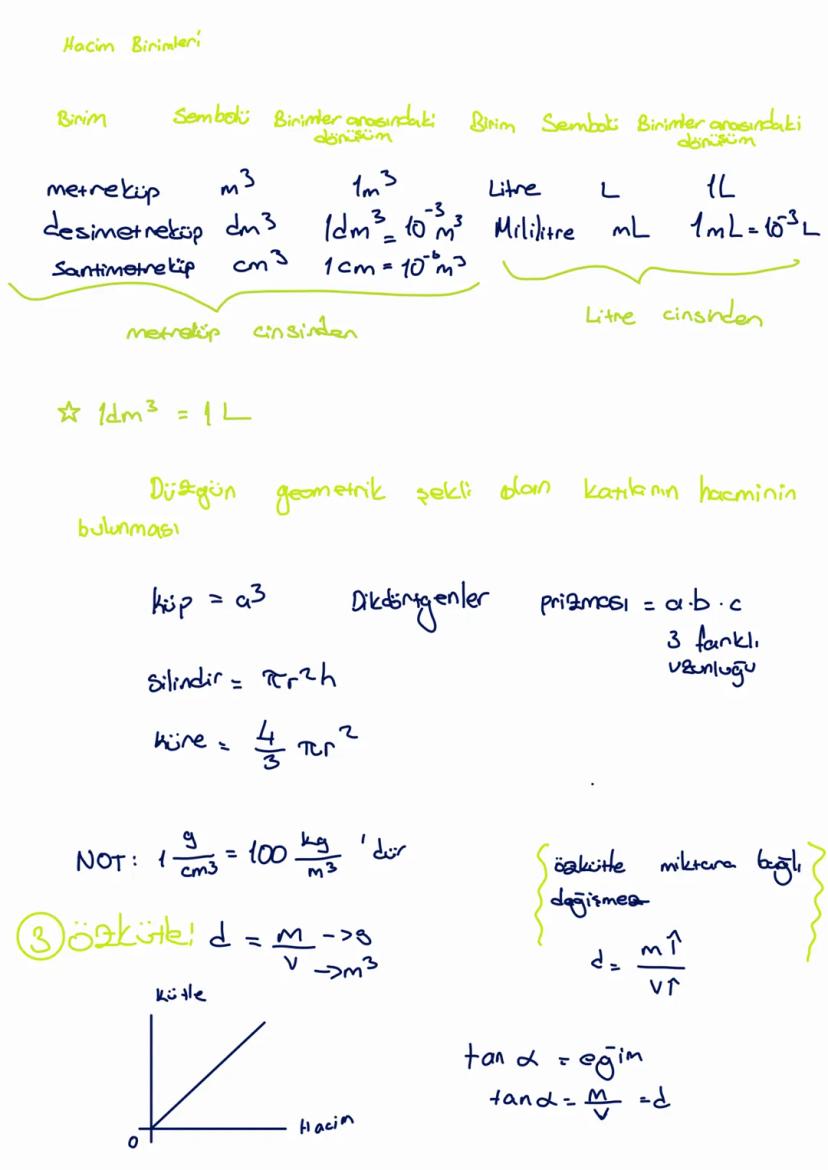 Hacim Birimleri
Birim Sembolü Birimler arasındaki dönüşüm Birim Sembolü Birimler arasındaki dönüşüm
metreküp m³ 1m³ Litre L 1L
desimetreküp dm³ 1dm³ = 10⁻³ m³ Mililitre mL 1mL = 10⁻³ L
Santimetreküp cm³ 1cm = 10⁻⁶ m³
metreküp cinsinden Litre cinsinden
☆ 1dm³ = 1L
Düzgün geometrik şekli olan katıların hacminin
bulunması
küp = a³ Dikdörtgenler prizması = a·b·c
3 farklı
uzunluğu
silindir = πr²h
küre = 4/3 πr²
NOT: 1 g/cm³ = 100 kg/m³ 'dür
özkütle miktara bağlı
değişmez
3 özkütle: d = m/v ->g ->m³
d = m↑/v↑
kütle
tan α = eğim
tan α = m/v = d
Hacim
0